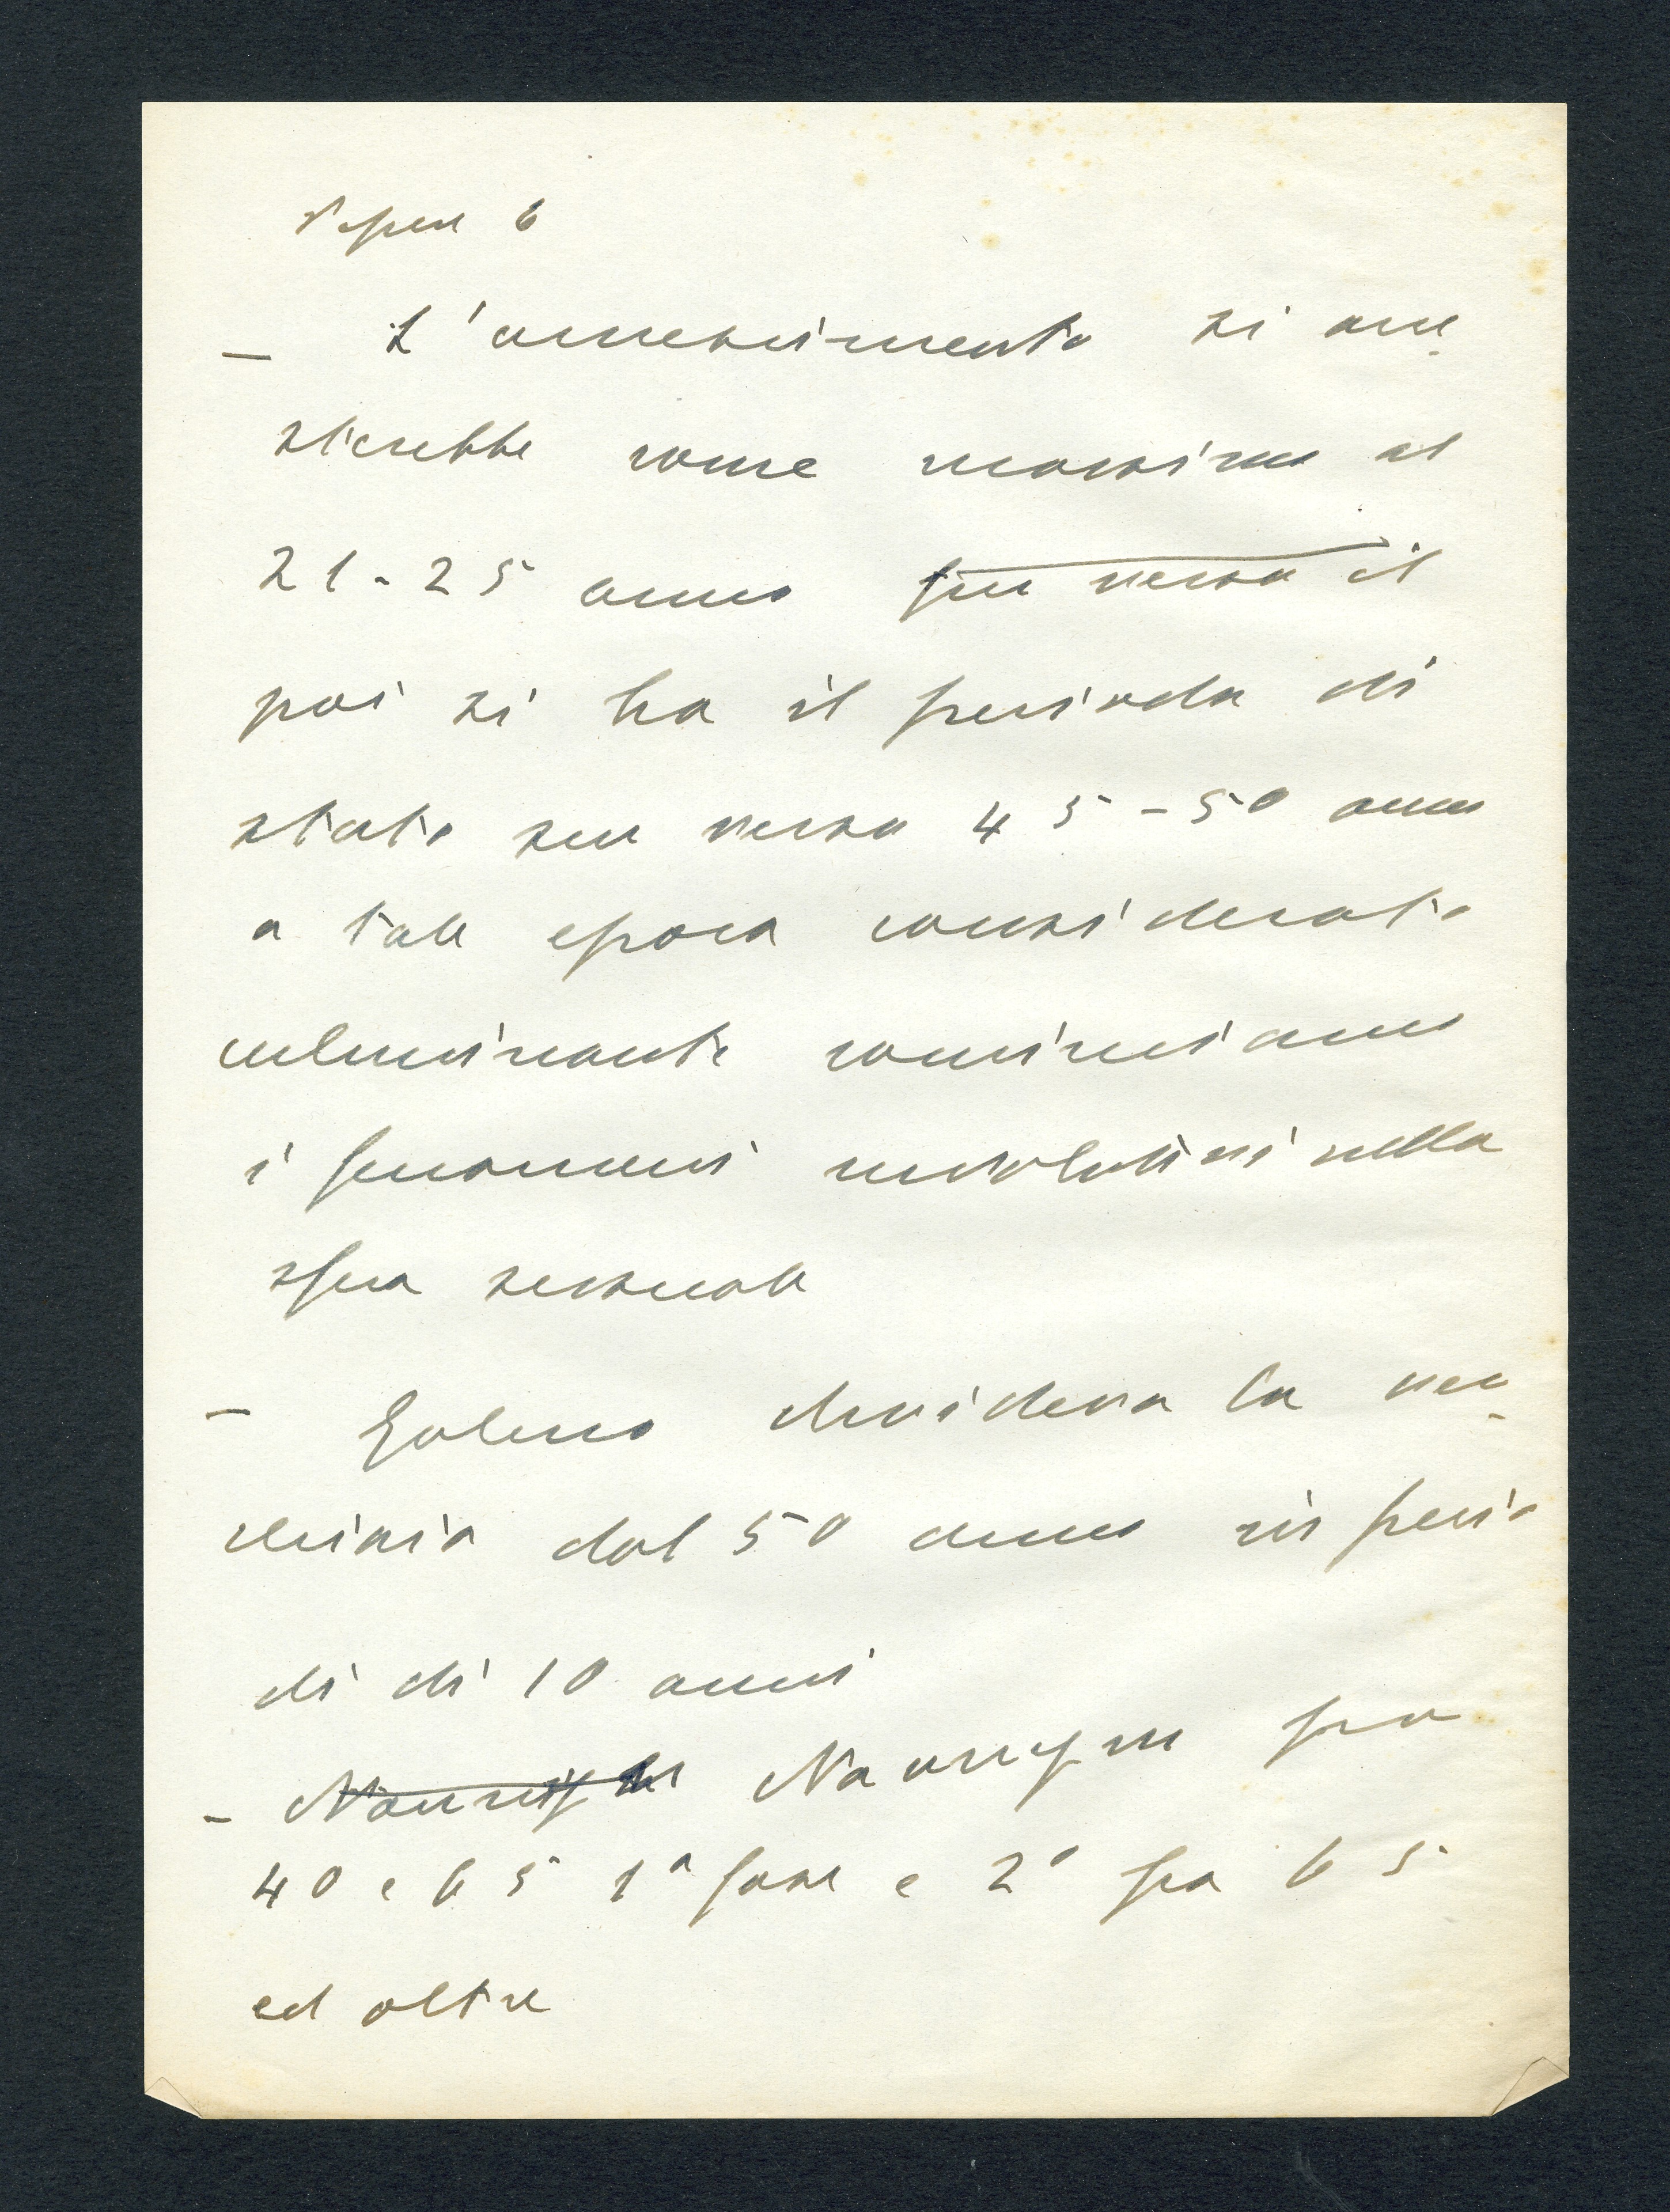 6
- L'accrescimento si arre
sterebbe come massimo al
21-25 anno fin verso il
poi si ha il periodo di
stato sin verso 45-50 anno
a tale epoca considerata
culminante cominciano
i fenomeni involutivi nella
sfera sessuale
- Galeno divideva la vec
chiaia dal 50 anno in perio
di di 10 anni
-
40 e 65 1ª fase e 2ª fra 65
ed oltre